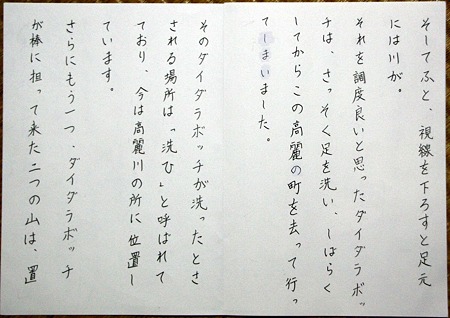 そしてふと、視線を下ろすと足元
には川が。
それを調度良いと思ったダイダラボッ
チは、さっそく足を洗い、しばらく
してからこの高麗の町を去って行っ
てしまいました。
そのダイダラボッチが洗ったとさ
される場所は「洗ひ」と呼ばれて
ており、今は高麗川の所に位置し
ています。
さらにもう一つ、ダイダラボッチ
が棒に担って来た二つの山は、置